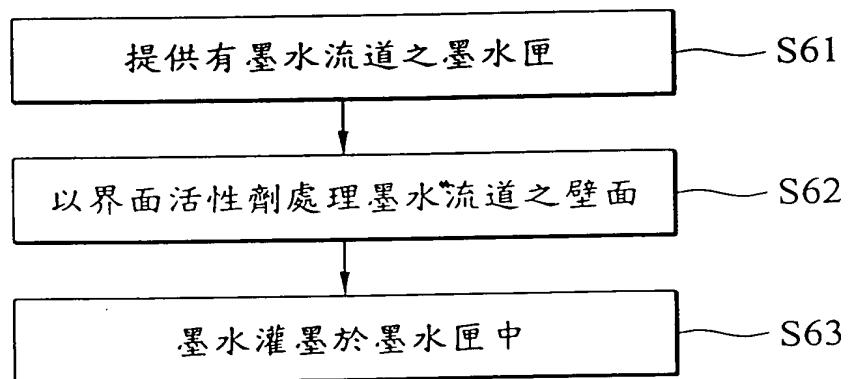 提供有墨水流道之墨水匣
S61
以界面活性劑處理墨水流道之壁面
S62
墨水灌墨於墨水匣中
S63